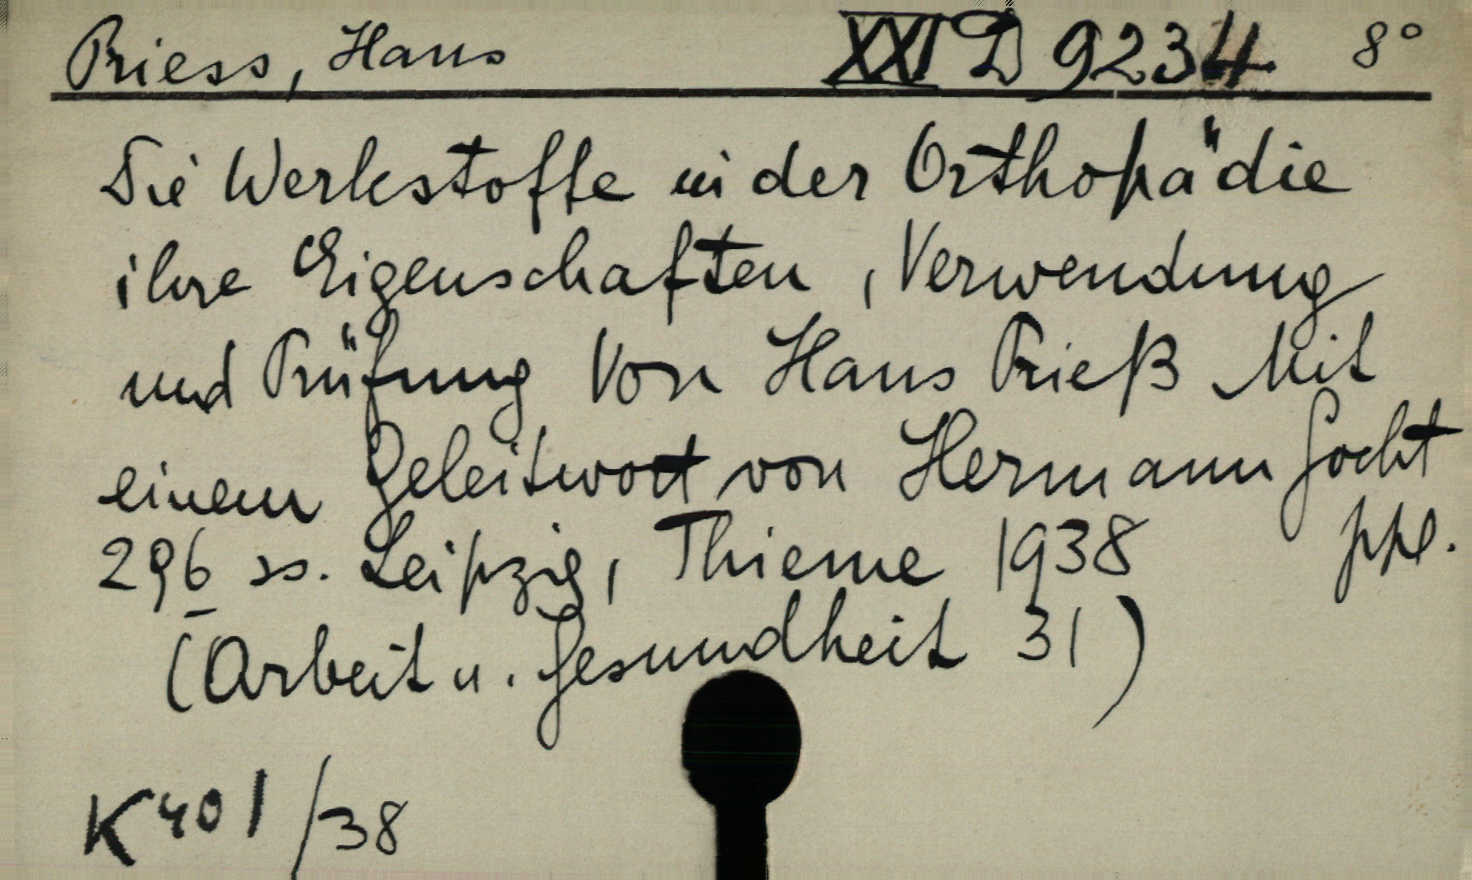 Priess, Hans XXI D 9234 8°
Die Werkstoffe in der Orthopädie
ihre Eigenschaften, Verwendung
und Prüfung Von Hans Prieß Mit
einem Geleitwort von Hermann Gocht
296 ss. Leipzig, Thieme 1938 ppl.
(Arbeit u. Gesundheit 31)
K 401/38